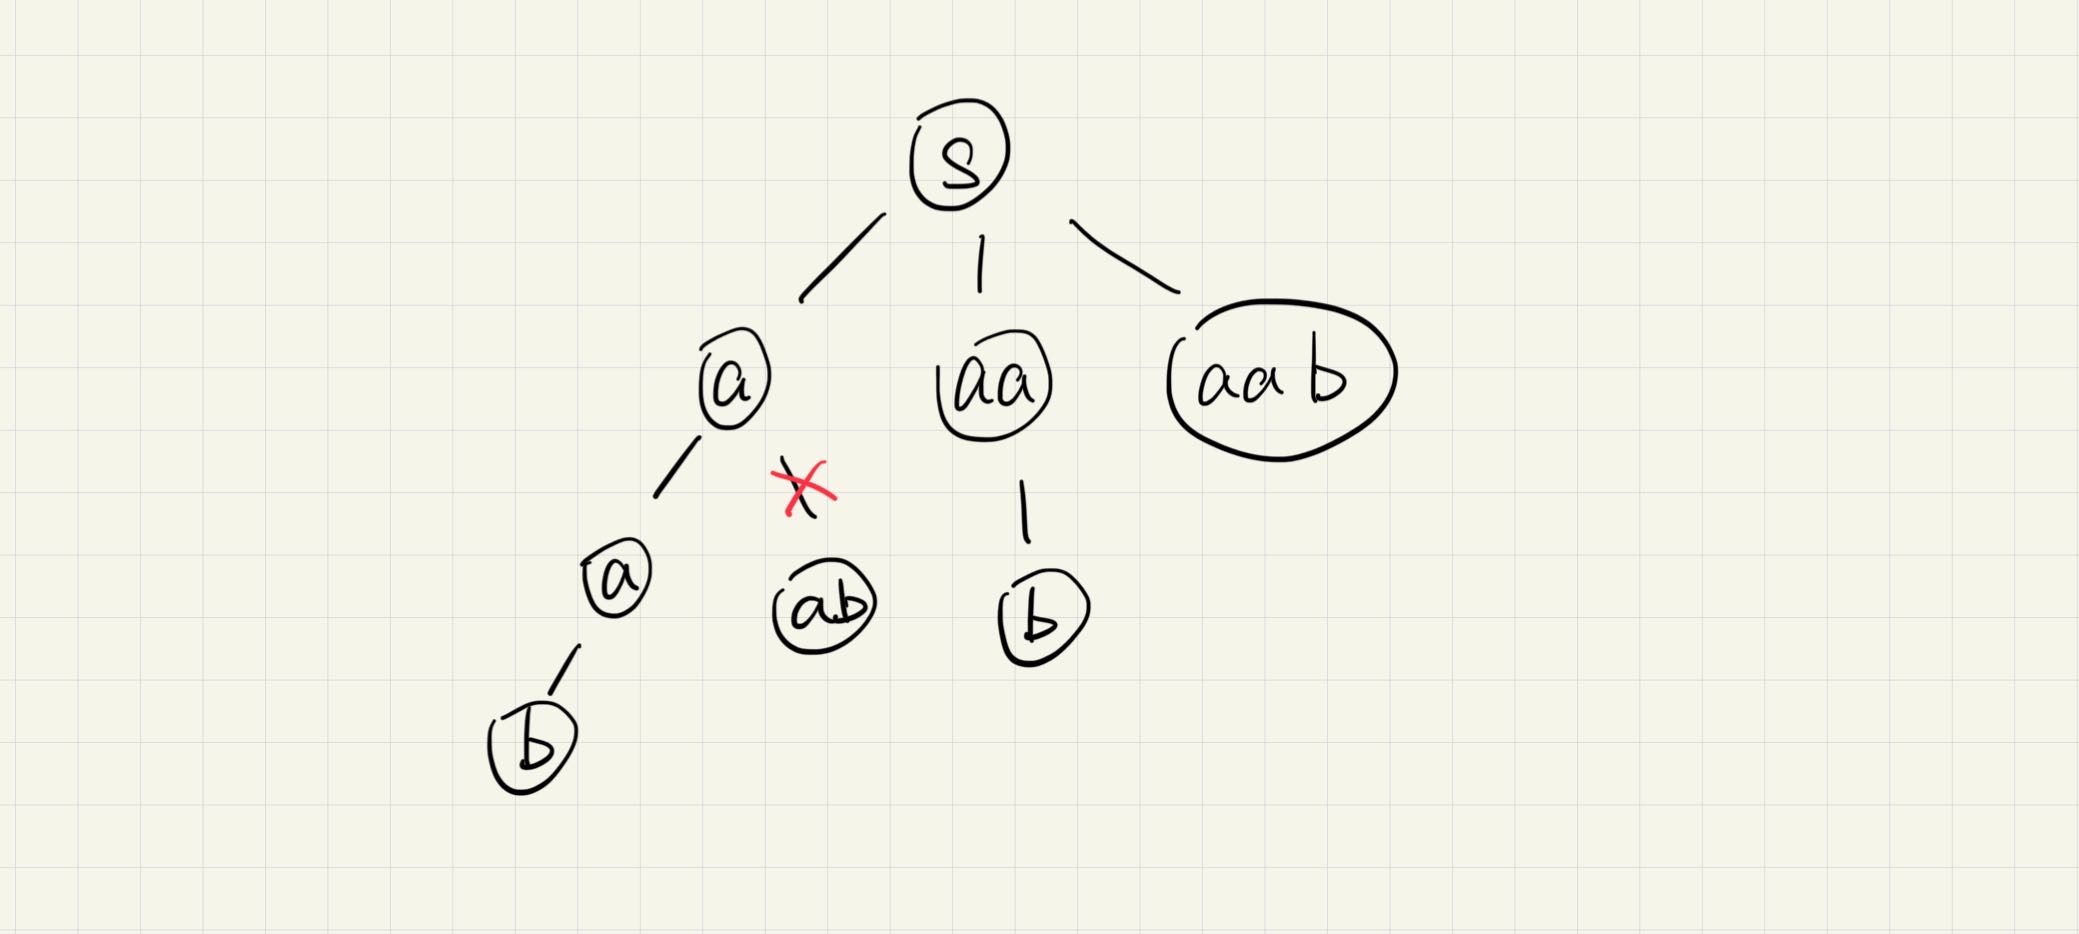 S
a aa aab
a ab b
b